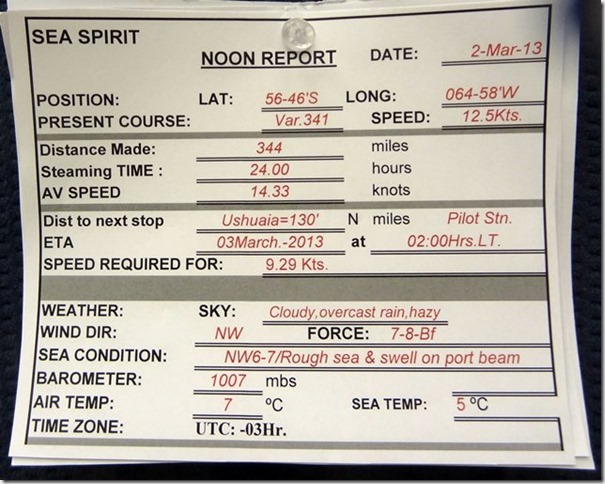 SEA SPIRIT
NOON REPORT DATE: 2-Mar-13
POSITION: LAT: 56-46'S LONG: 064-58'W
PRESENT COURSE: Var.341 SPEED: 12.5Kts.
Distance Made: 344 miles
Steaming TIME : 24.00 hours
AV SPEED 14.33 knots
Dist to next stop Ushuaia=130' N miles Pilot Stn.
ETA 03March.-2013 at 02:00Hrs.LT.
SPEED REQUIRED FOR: 9.29 Kts.
WEATHER: SKY: Cloudy,overcast rain,hazy
WIND DIR: NW FORCE: 7-8-Bf
SEA CONDITION: NW6-7/Rough sea & swell on port beam
BAROMETER: 1007 mbs
AIR TEMP: 7 ºC SEA TEMP: 5 ºC
TIME ZONE: UTC: -03Hr.